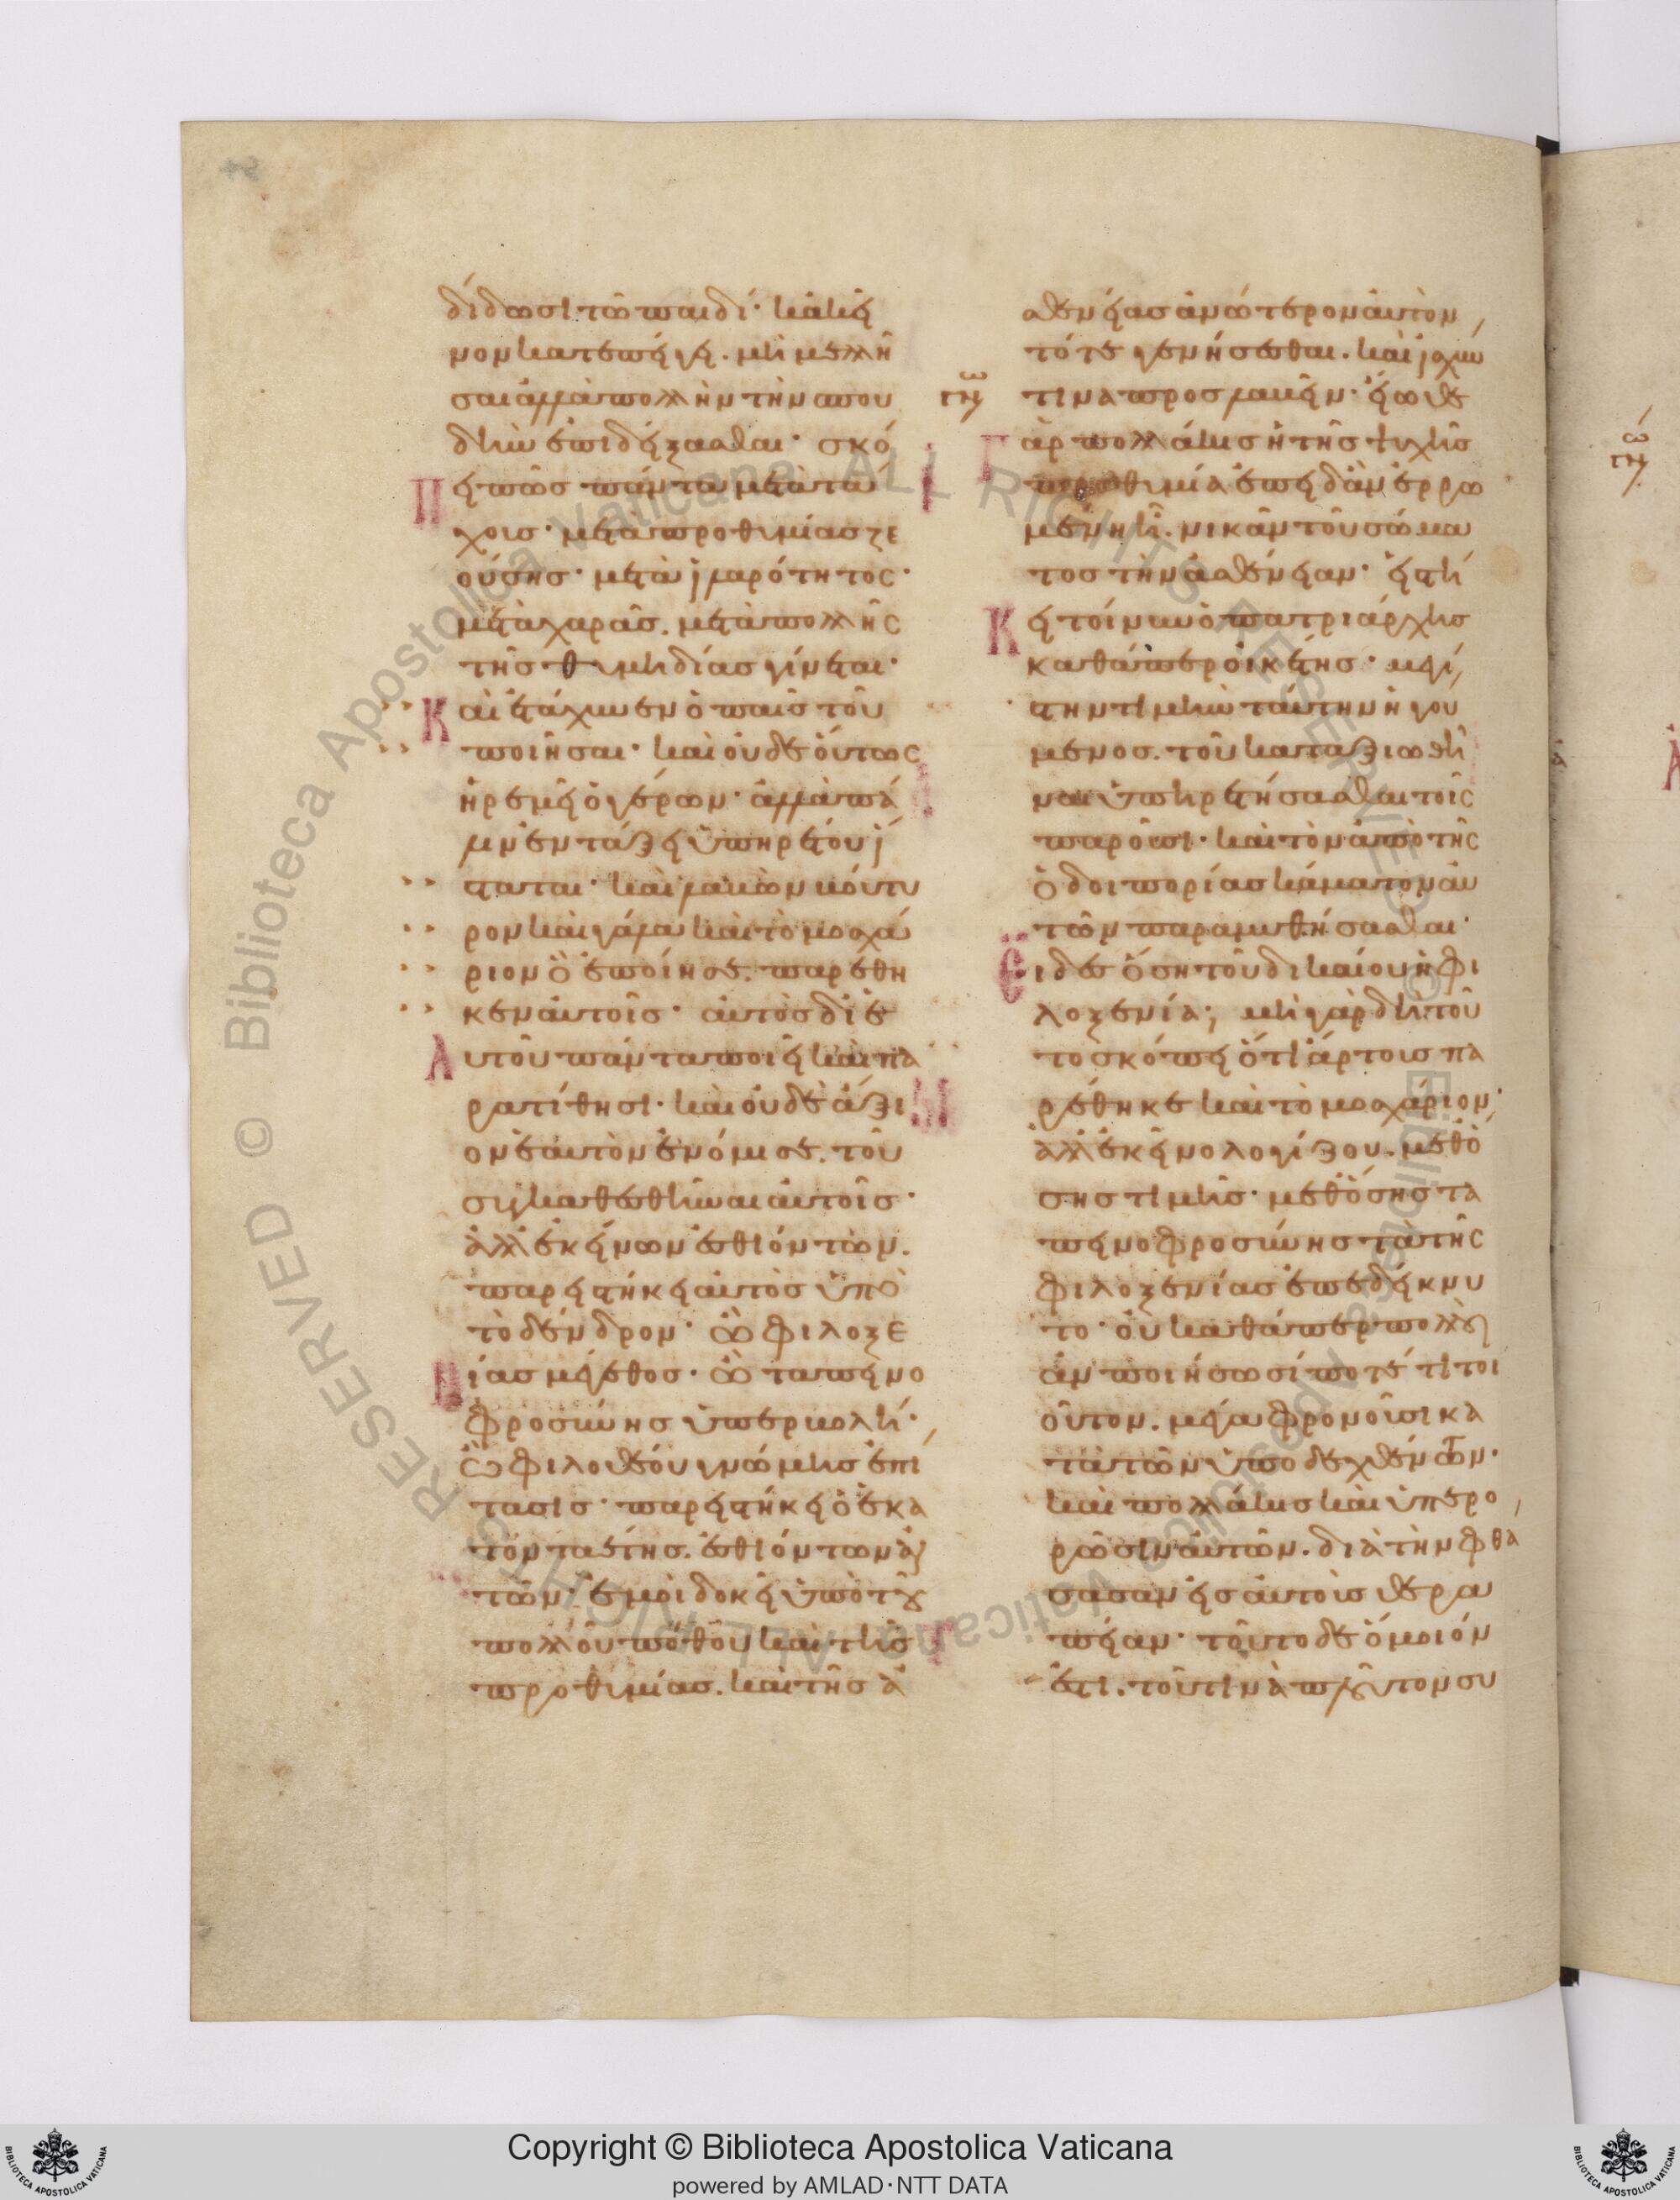 δίδωσι τῶ παιδί· κἀκεῖ
νον κατεπείγει. μὴ μελλῆ
σαι ἀλλὰ πολλὴν τὴν σπου
δὴν ἐπιδείξασθαι· σκό
πει πῶς πάντα μετὰ τά
χους· μετὰ προθυμίας ζε
ούσης· μετὰ ἱλαρότητος·
μετὰ χαρᾶς. μετὰ πολλῆς
τῆς θυμηδίας γίνεται·
Καὶ ἐτάχυνεν ὁ παῖς τοῦ
ποιῆσαι· καὶ οὐδὲ οὕτως
ἠρεμεῖ ὁ γέρων· ἀλλὰ πά
λιν ἐν τάξει ὑπηρέτου ἵ
σταται· καὶ λαβὼν βούτυ
ρον καὶ γάλα καὶ τὸ μοσχά
ριον ὃ ἐποίησε. παρέθη
κεν αὐτοῖς· αὐτὸς δι ἑ
Αυτοῦ πάντα ποιεῖ καὶ πα
ρατίθησι· καὶ οὐδὲ ἄξι
ον ἑαυτὸν ἐνόμισε. τοῦ
συγκαθεσθῆναι αὐτοῖς·
ἀλλ ἐκείνων ἐσθιόντων.
παρειστήκει αὐτὸς ὑπὸ
τὸ δένδρον· ὢ φιλοξε
νίας μέγεθος· ὢ ταπεινο
φροσύνης ὑπερβολή·
ὢ φιλοθέου γνώμης ἐπί
τασις· παρειστήκει ὁ ἑκα
τονταέτης. ἐσθιόντων αὐ
τῶν· ἐμοὶ δοκεῖ ὑπὸ τοῦ
πολλοῦ πόθου καὶ τῆς
προθυμίας. καὶ τῆς ἀ
σθενείας ἀνώτερον αὐτὸν
τότε γενήσεσθαι. καὶ ἰσχύν
τινα προσλαβεῖν· εἴωθε
γὰρ πολλάκις ἡ τῆς ψυχῆς
προθυμία ἐπειδὰν ἐρρω
μένη ἦ. νικᾶν τοῦ σώμα
τος τὴν ἀσθένειαν· εἱστή
Κει τοίνυν ὁ πατριάρχης
καθάπερ οἰκέτης· μεγί
στην τιμὴν ταύτην ἡγού
μενος. τοῦ καταξιωθῆ
ναι ὑπηρετήσασθαι τοῖς
παροῦσι· καὶ τὸν ἀπὸ τῆς
ὁδοιπορίας κάματον αὐ
τῶν παραμυθήσασθαι·
Εἶδες ὅση τοῦ δικαίου ἡ φι
λοξενία; μὴ γὰρ δὴ τοῦ
το σκόπει ὅτι ἄρτους πα
ρέθηκε καὶ τὸ μοσχάριον·
ἀλλ ἐκεῖνο λογίζου. μεθ ὅ
σης τιμῆς· μεθ ὅσης τα
πεινοφροσύνης τὰ τῆς
φιλοξενίας ἐπεδείκνυ
το· οὐ καθάπερ πολλοὶ
ἂν ποιήσωσί ποτέ τι τοι
οῦτον. μέγα φρονοῦσι κα
τὰ τῶν ὑποδεχθέντων·
καὶ πολλάκις καὶ ὑπερο
ρῶσιν αὐτῶν. διὰ τὴν φθά
σασαν εἰς αὐτοὺς θερα
πείαν· τοῦτο δὲ ὅμοιόν
ἐστι. τοῦ τινὰ πλοῦτον συ